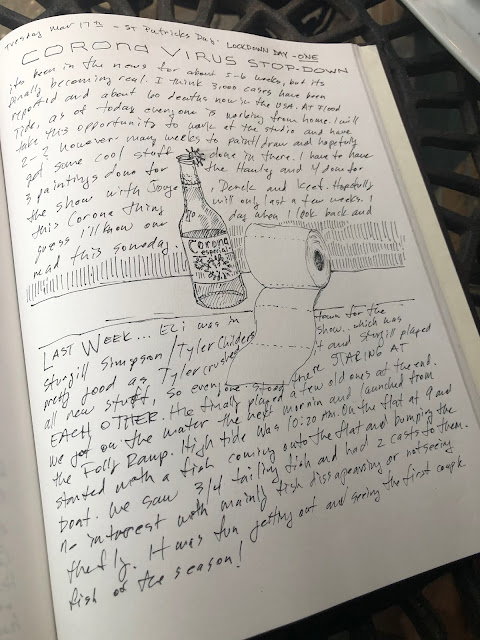 Tuesday Mar 17th - St Patricks Day. LOCKDOWN DAY - ONE
CORONA VIRUS STOP-DOWN
its been in the news for about 5-6 weeks, but its
finally becoming real. I think 3,000 cases have been
reported and about 60 deaths now in the USA. At Flood
Tide, as of today everyone is working from home. I will
take this opportunity to work at the studio and have
2-? however many weeks to paint/draw and hopefully
get some cool stuff done in there. I have to have
3 paintings done for the Hanley and 4 done for
the show with Jorge, Derek and Keef. Hopefully
this Corone thing will only last a few weeks. I
guess i'll know one day when I look back and
read this someday.
Corona
LAST WEEK... Eli was in town for the
Sturgill Simpson/Tyler Childers show.. which was
pretty good as Tyler crushed it and Sturgill played
all new stuff, so everyone stood there STARING AT
EACH OTHER. He finally played a few old ones at the end.
We got on the water the next mornin and launched from
the Folly Ramp. High tide was 10:20 AM. On the flat at 9 and
started with a fish coming onto the flat and bumping the
boat. We saw 3/4 tailing fish and had 2 casts to them.
no interest with mainly fish dissapearing or not seeing
the fly. It was fun getting out and seeing the first couple
fish of the season!